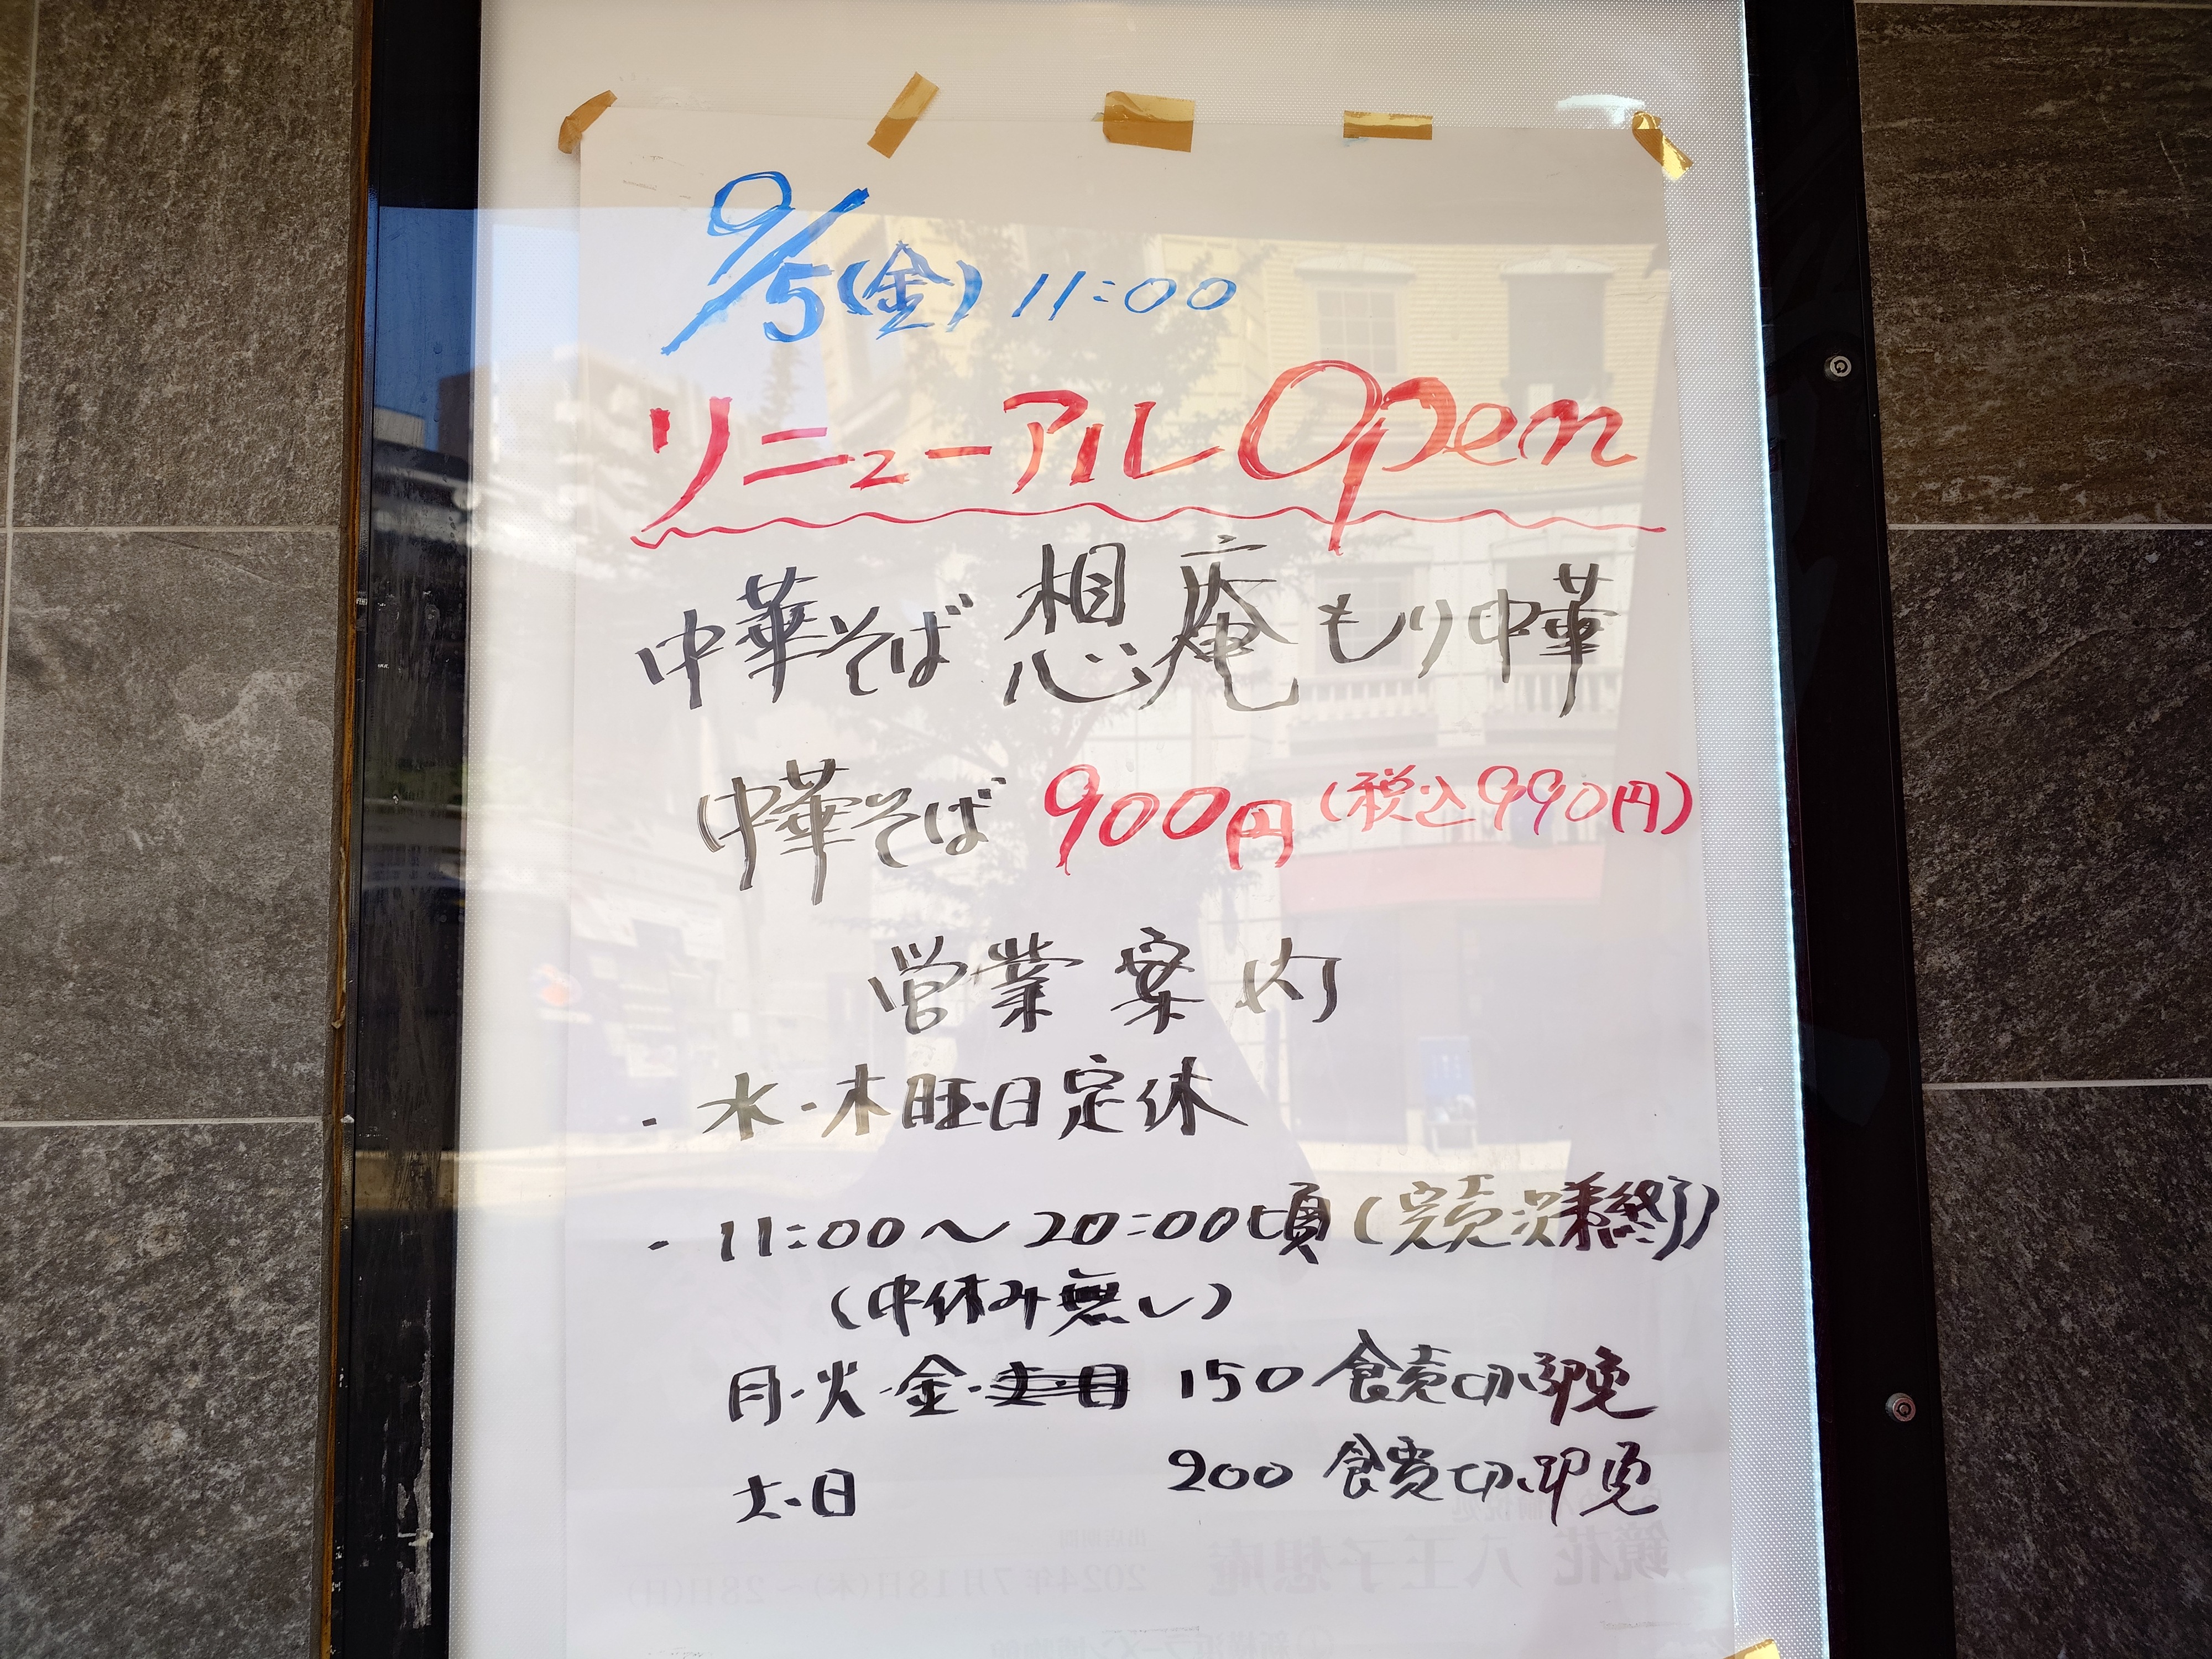 9/5(金) 11:00
リニューアルOpen
中華そば 想庵 もり中華
中華そば 900円(税込990円)
営業案内
・水・木旺日定休
・11:00〜20:00頃(完売次第終了)
(中休み無し)
月・火・金・土・日 150食売切御免
土・日 200食売切御免
鏡花 八王子想庵
2024年7月18日(木)〜28日(日)